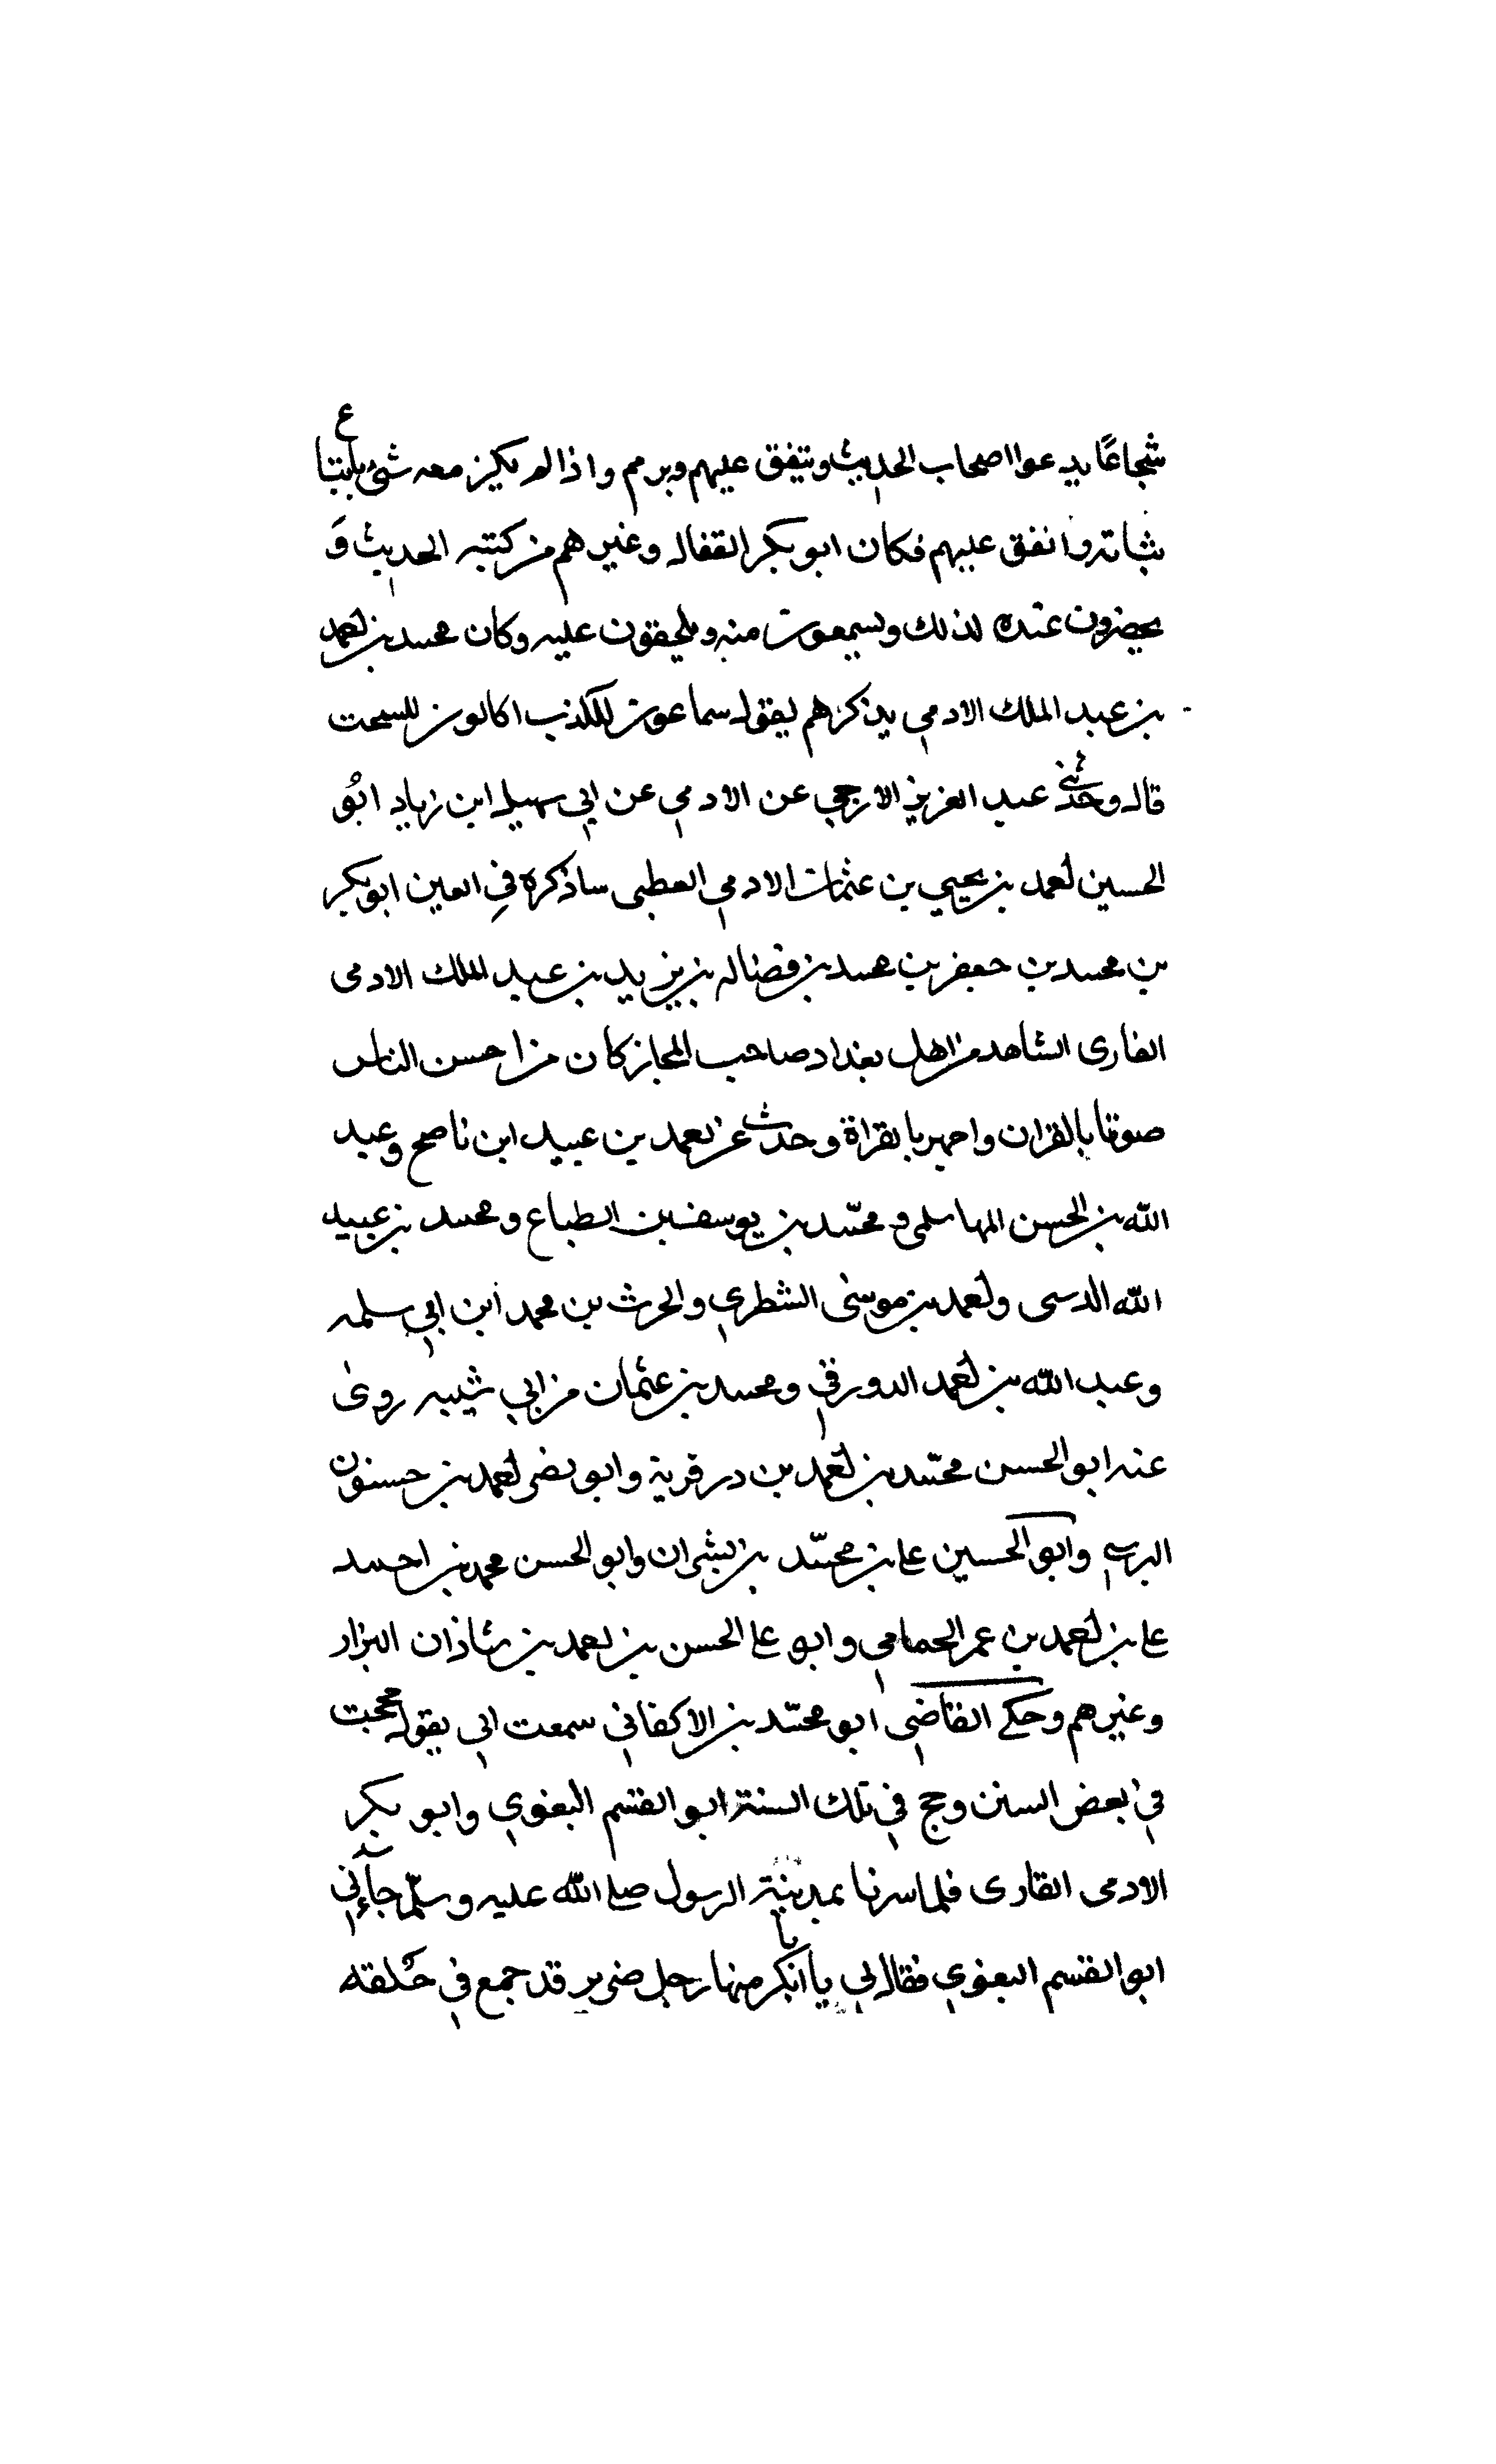 شجاعًا يدعوا اصحاب الحديث وينفق عليهم وبرمم واذا لم يكن معه شئ باع
ثيابه وانفق عليهم فكان ابو بكر القفال وغيرهم من كتبه الحديث وَ
يحضرون عنده لذلك ويسمعون منه و عليه وكان محمد بن احمد
بن عبد الملك الادمي يذكرهم يقول سماعون للكذب اكالون للسحت
قال وحدثني عبد العزيز الازجي عن الادمي عن ابي سهيل ابن زياد ابُو
الحسين احمد بن يحيي بن عثمان الادمي العطبى ساذكره في العين ابو بكر
بن محمد بن جعفر بن محمد بن فضاله بن يزيد بن عبد الملك الادمى
القارى الشاهد من اهل بغداد صاحب كان من احسن الناس
صوتا بالقران واجهر بالقراة وحدث عن احمد بن عبيد ابن ناصح وعبد
الله بن الحسن و محمّد بن يوسف بن الطباع ومحمد بن عبيد
الله واحمد بن موسى الشطري والحرث بن محمد ابن ابي سلمه
وعبد الله بن احمد الدورقي ومحمد بن عثمان من ابي شيبه روى
عنه ابو الحسن محمّد بن احمد بن وابو نصر احمد بن حسنون
النرسي وابو الحسين علي بن محمّد بن بشران وابو الحسن محمد بن احمد
علي بن احمد بن عمر الحمامي وابو علي الحسن بن احمد بن شاذان البزار
وغيرهم وحكى القاضي ابو محمّد بن الاكفاني سمعت ابي يقول حججت
في بعض السنن وحج في تلك السنة ابو القسم البغوي وابو بكر
الادمى القارى فلما سرنا بمدينة الرسول صلى الله عليه وسلّم جآءني
ابو القسم البغوي فقال لي يا ابا بكر منها رجل ضرير قد جمع في حَلقه